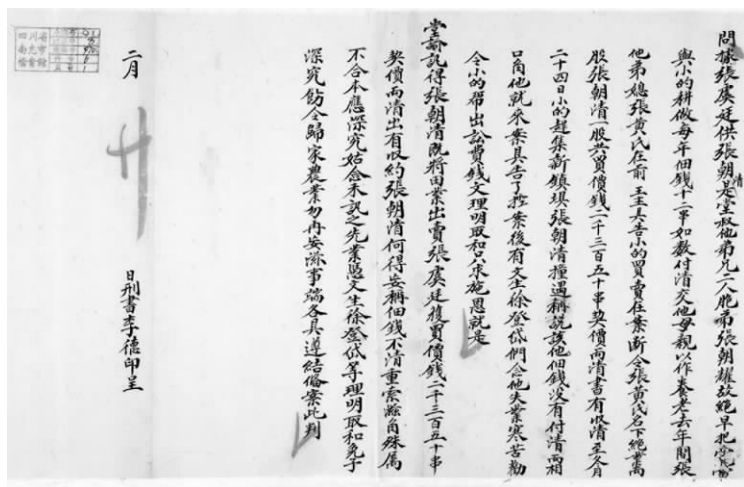 問據張虞廷供張朝清是堂
他弟兄二人胞弟張朝耀故絕早把
與小的耕做每年佃錢十二串如數付清交他母親以作養老去年間張
他弟媳張黃氏在前 王主具告小的買賣在案斷令張黃氏名下絕業
股張朝清一股共買價錢二千三百五十串契價兩清書有收清至冬月
二十四日小的趕集新鎮埧張朝清撞遇稱說該他佃錢沒有付清兩相
口角他就來案具告了控案後有文生徐登岱們念他失業寒苦勸
令小的幫出訟費錢文理明取和只求施恩就是
堂諭訊得張朝清既將田業出賣張虞廷復買價錢二千三百五十串
契價兩清出有收約張朝清何得妄稱佃錢不清重索滋角殊屬
不合本應深究姑念未訊之先業憑文生徐登岱等理明取和免予
深究飭令歸家農業勿再妄滋事端各具遵結備案此判
二月廿日刑書李德印呈
四川省
南充市
檔案館